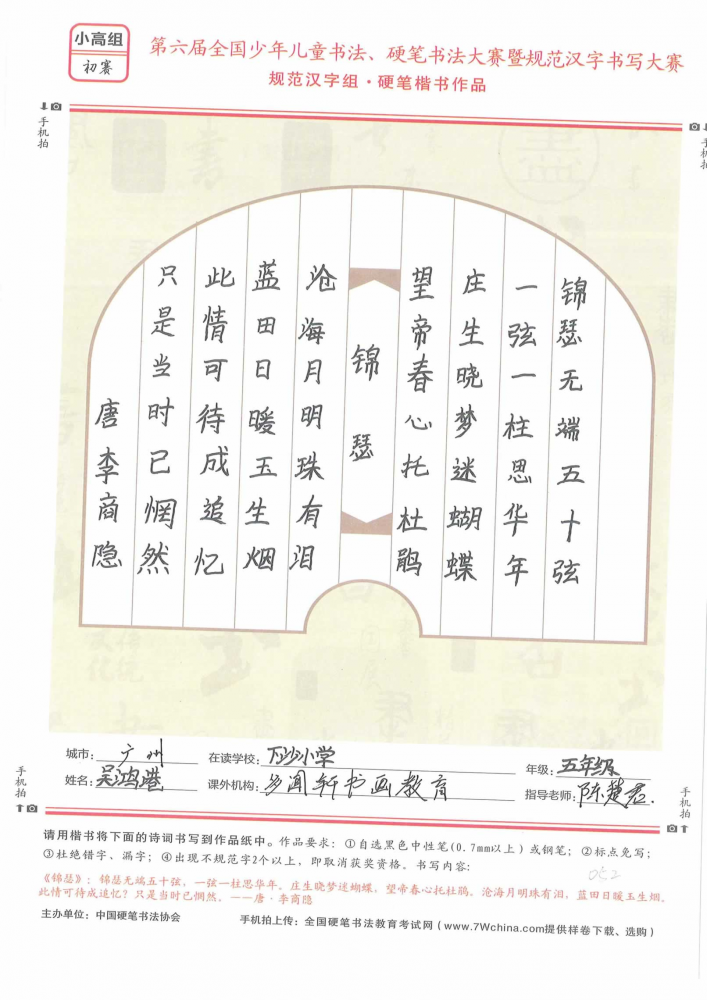 小高组
初赛
第六届全国少年儿童书法、硬笔书法大赛暨规范汉字书写大赛
规范汉字组·硬笔楷书作品
手机拍
手机拍
锦瑟无端五十弦
一弦一柱思华年
庄生晓梦迷蝴蝶
望帝春心托杜鹃
锦瑟
沧海月明珠有泪
蓝田日暖玉生烟
此情可待成追忆
只是当时已惘然
唐李商隐
城市：广州 在读学校：下沙小学 年级：五年级
姓名：吴鸿港 课外机构：乡闻轩书画教育 指导老师：陈楚君.
手机拍
手机拍
请用楷书将下面的诗词书写到作品纸中。作品要求：①自选黑色中性笔(0.7mm以上)或钢笔；②标点免写；
③杜绝错字、漏字；④出现不规范字2个以上，即取消获奖资格。书写内容：
《锦瑟》：锦瑟无端五十弦，一弦一柱思华年。庄生晓梦迷蝴蝶，望帝春心托杜鹃。沧海月明珠有泪，蓝田日暖玉生烟。
此情可待成追忆？只是当时已惘然。——唐·李商隐
主办单位：中国硬笔书法协会 手机拍上传：全国硬笔书法教育考试网(www.7Wchina.com提供样卷下载、选购)